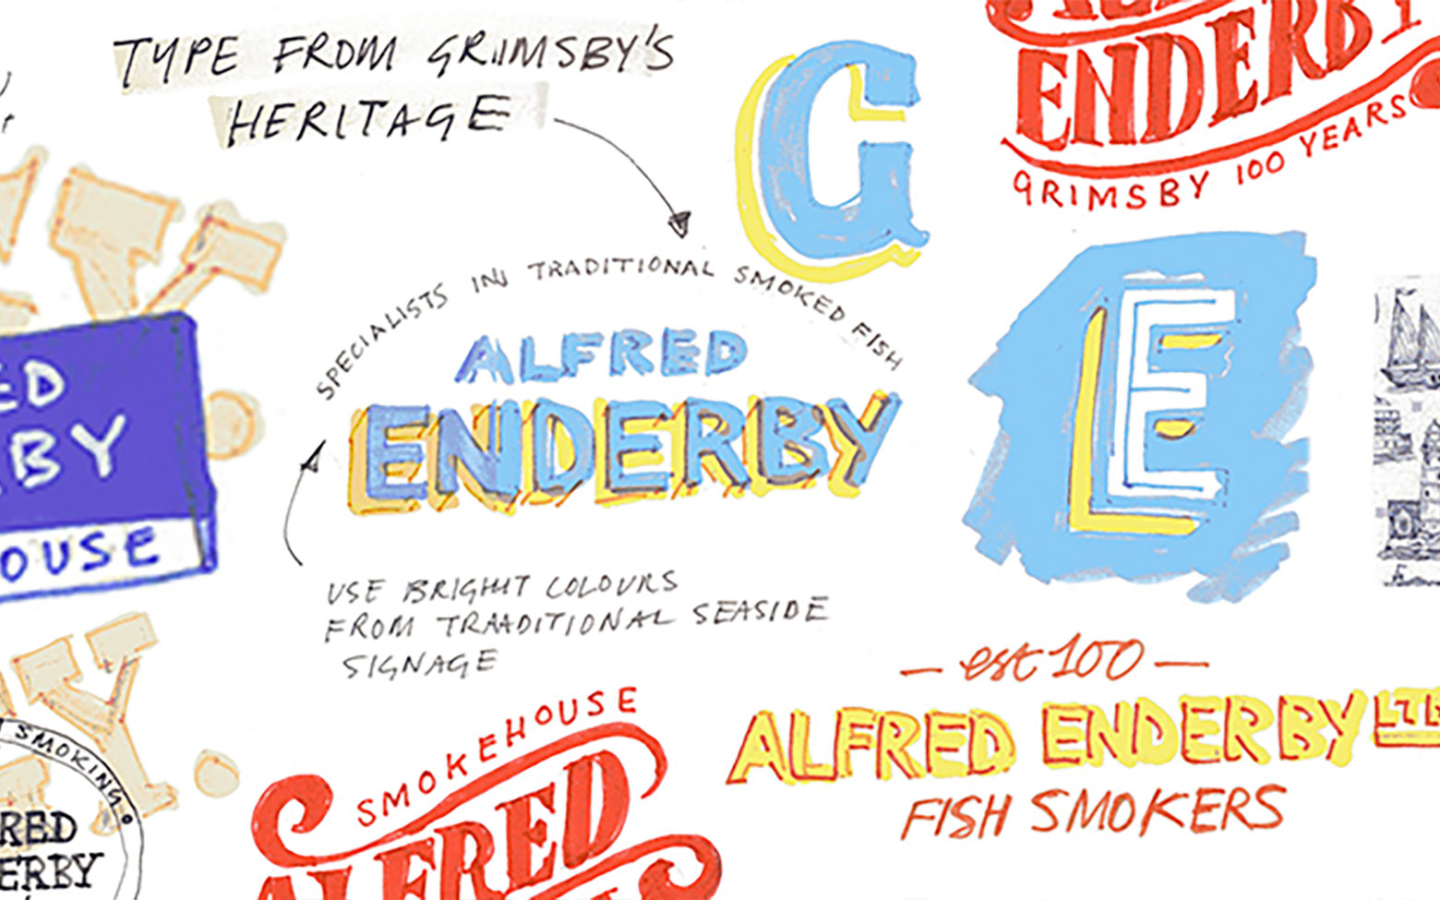 TYPE FROM GRIMSBY'S
HERITAGE
G
ENDERBY
GRIMSBY 100 YEARS
SPECIALISTS IN TRADITIONAL SMOKED FISH
ALFRED
ENDERBY
E
ED
BY
OUSE
USE BRIGHT COLOURS
FROM TRAADITIONAL SEASIDE
SIGNAGE
— est 100 —
ALFRED ENDERBY LTD
FISH SMOKERS
SMOKEHOUSE
ALFRED
Y
SMOKING
RED
ERBY